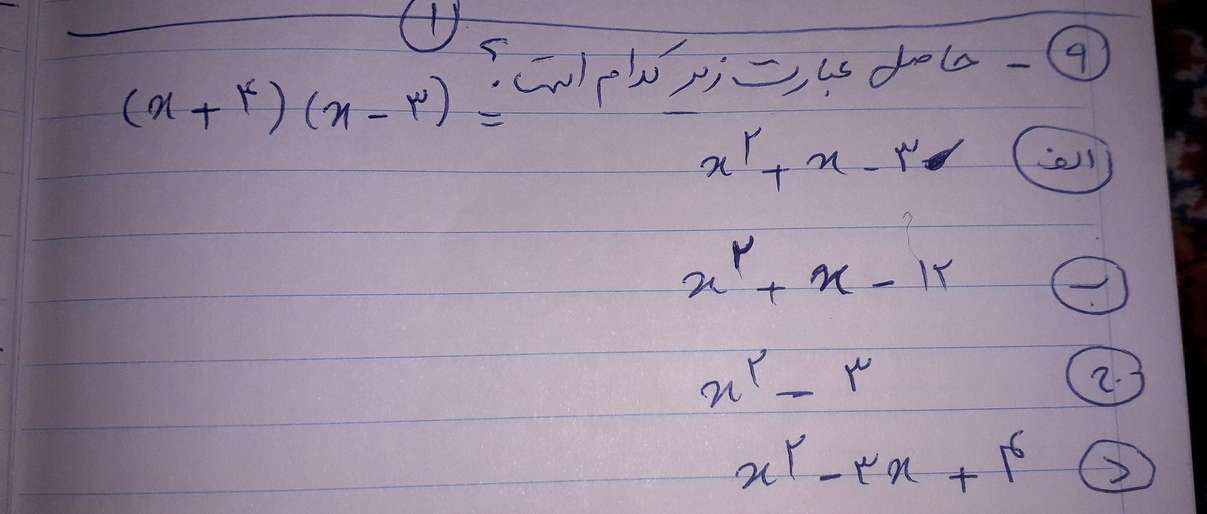 ۱
۹ - حاصل عبارت زیر کدام است؟
(x + ۴) (x - ۳) =
الف x² + x - ۳
ب x² + x - ۱۲
ج x² - ۳
د x² - ۳x + ۴